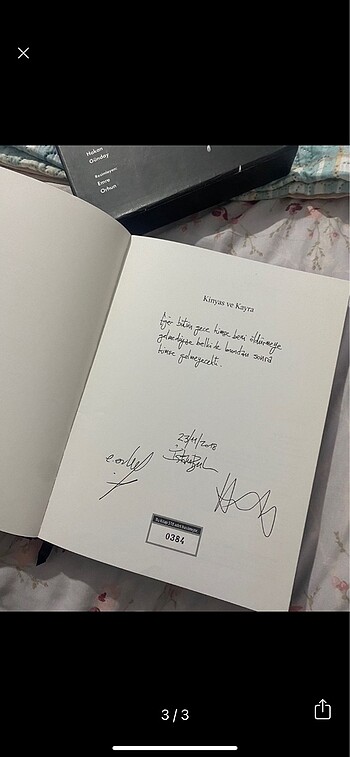 Hakan
Günday
Resimleyen:
Emre
Orhun
Kinyas ve Kayra
Eğer bütün gece kimse beni öldürmeye
gelmediyse belki de bundan sonra
kimse gelmeyecekti.
23/11/2018
İstanbul
e.orhun
0384
3 / 3